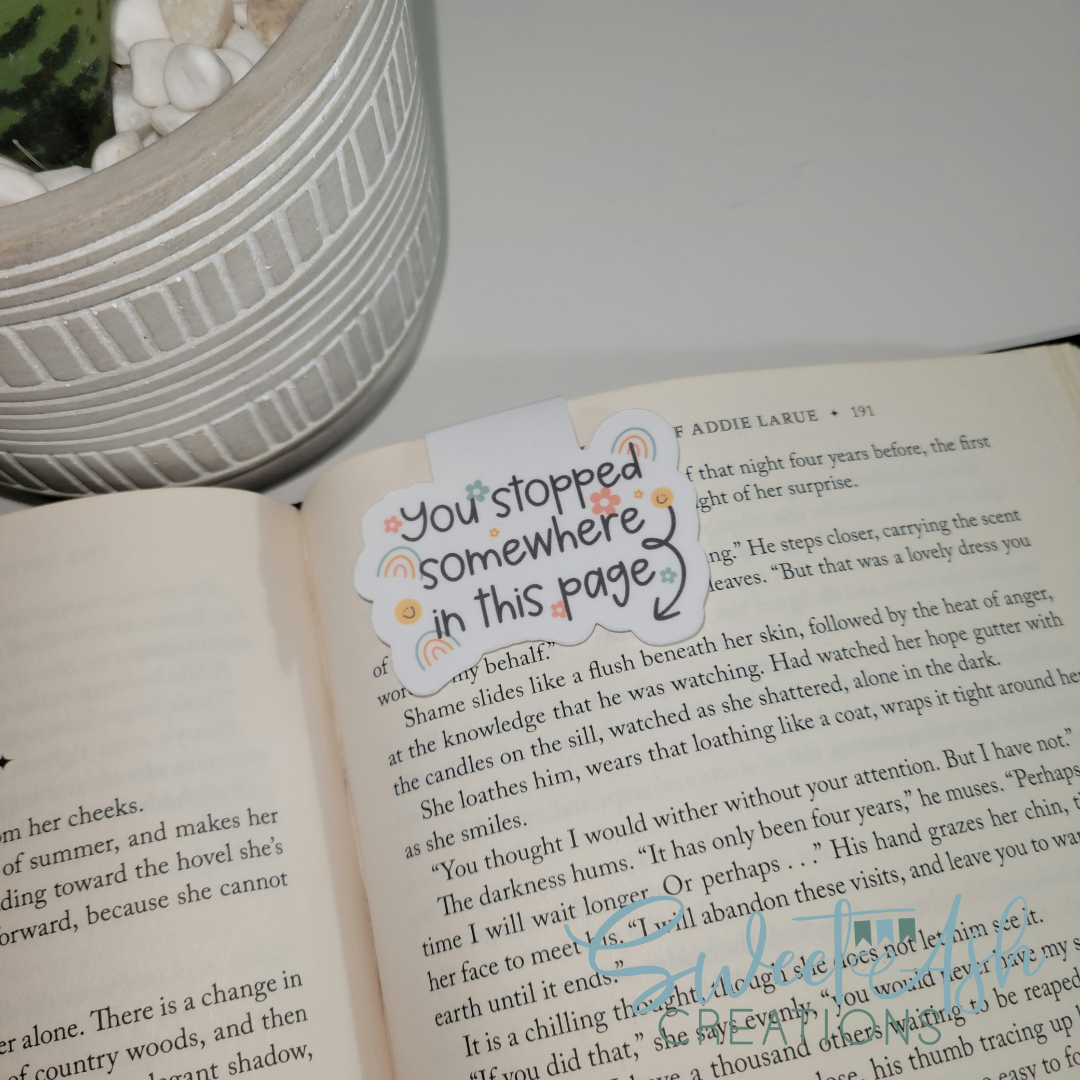 om her cheeks.
of summer, and makes her
ding toward the hovel she's
orward, because she cannot
er alone. There is a change in
of country woods, and then
legant shadow,
F ADDIE LARUE ✦ 191
f that night four years before, the first
ght of her surprise.
ng.” He steps closer, carrying the scent
leaves. “But that was a lovely dress you
You stopped
somewhere
in this page
of
my behalf.”
Shame slides like a flush beneath her skin, followed by the heat of anger,
at the knowledge that he was watching. Had watched her hope gutter with
the candles on the sill, watched as she shattered, alone in the dark.
She loathes him, wears that loathing like a coat, wraps it tight around her
as she smiles.
“You thought I would wither without your attention. But I have not.”
The darkness hums. “It has only been four years,” he muses. “Perhaps
time I will wait longer. Or perhaps . . .” His hand grazes her chin, t
her face to meet his. “I will abandon these visits, and leave you to wa
earth until it ends.”
It is a chilling thought, though she does not let him see it.
“If you did that,” she says evenly, “you would never have my s
have a thousand others waiting to be reaped
his thumb tracing up
easy to fo
Sweet Ash
CREATIONS